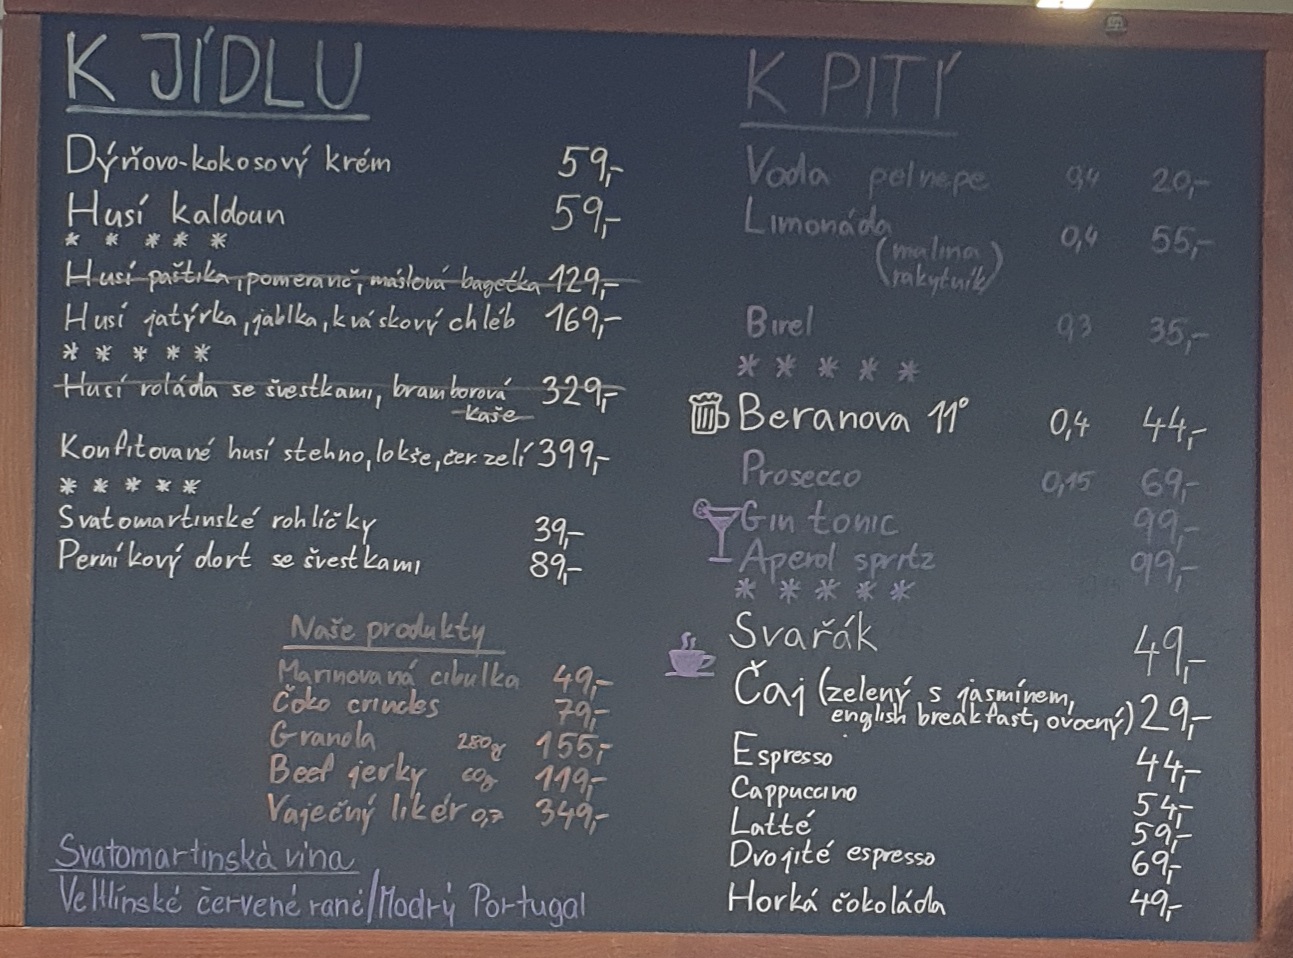 K JÍDLU
Dýňovo-kokosový krém 59,-
Husí kaldoun 59,-
* * * * *
Husí paštika, pomeranč, máslová bagetka 129,-
Husí jatýrka, jablka, kváskový chléb 169,-
* * * * *
Husí roláda se švestkami, bramborová 329,-
kaše
Konfitované husí stehno, lokše, čer. zelí 399,-
* * * * *
Svatomartinské rohlíčky 39,-
Perníkový dort se švestkami 89,-
Naše produkty
Marinovaná cibulka 49,-
Čoko crincles 79,-
Granola 280g 155,-
Beef jerky 60g 119,-
Vaječný likér 0,7 349,-
Svatomartinská vína
Veltlínské červené rané/Modrý Portugal
K PITÍ
Voda pelnepe 0,4 20,-
Limonáda 0,4 55,-
(malina
rakytník)
Birel 0,3 35,-
* * * * *
Beranova 11° 0,4 44,-
Prosecco 0,15 69,-
Gin tonic 99,-
Aperol spritz 99,-
* * * * *
Svařák 49,-
Čaj (zelený s jasmínem,
english breakfast, ovocný) 29,-
Espresso 44,-
Cappuccino 54,-
Latté 59,-
Dvojité espresso 69,-
Horká čokoláda 49,-